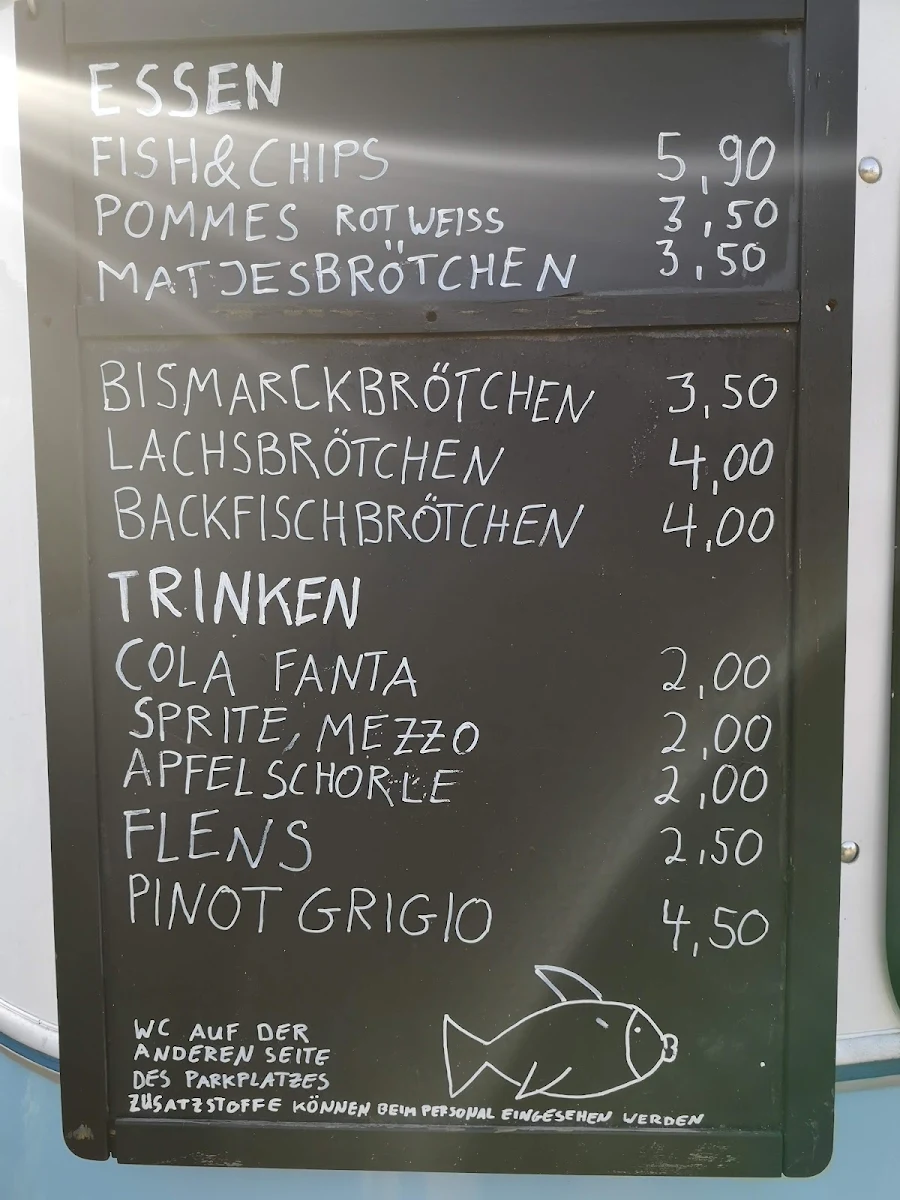 ESSEN
FISH&CHIPS 5,90
POMMES ROT WEISS 3,50
MATJESBRÖTCHEN 3,50
BISMARCKBRÖTCHEN 3,50
LACHSBRÖTCHEN 4,00
BACKFISCHBRÖTCHEN 4,00
TRINKEN
COLA FANTA 2,00
SPRITE, MEZZO 2,00
APFELSCHORLE 2,00
FLENS 2,50
PINOT GRIGIO 4,50
WC AUF DER
ANDEREN SEITE
DES PARKPLATZES
ZUSATZSTOFFE KÖNNEN BEIM PERSONAL EINGESEHEN WERDEN